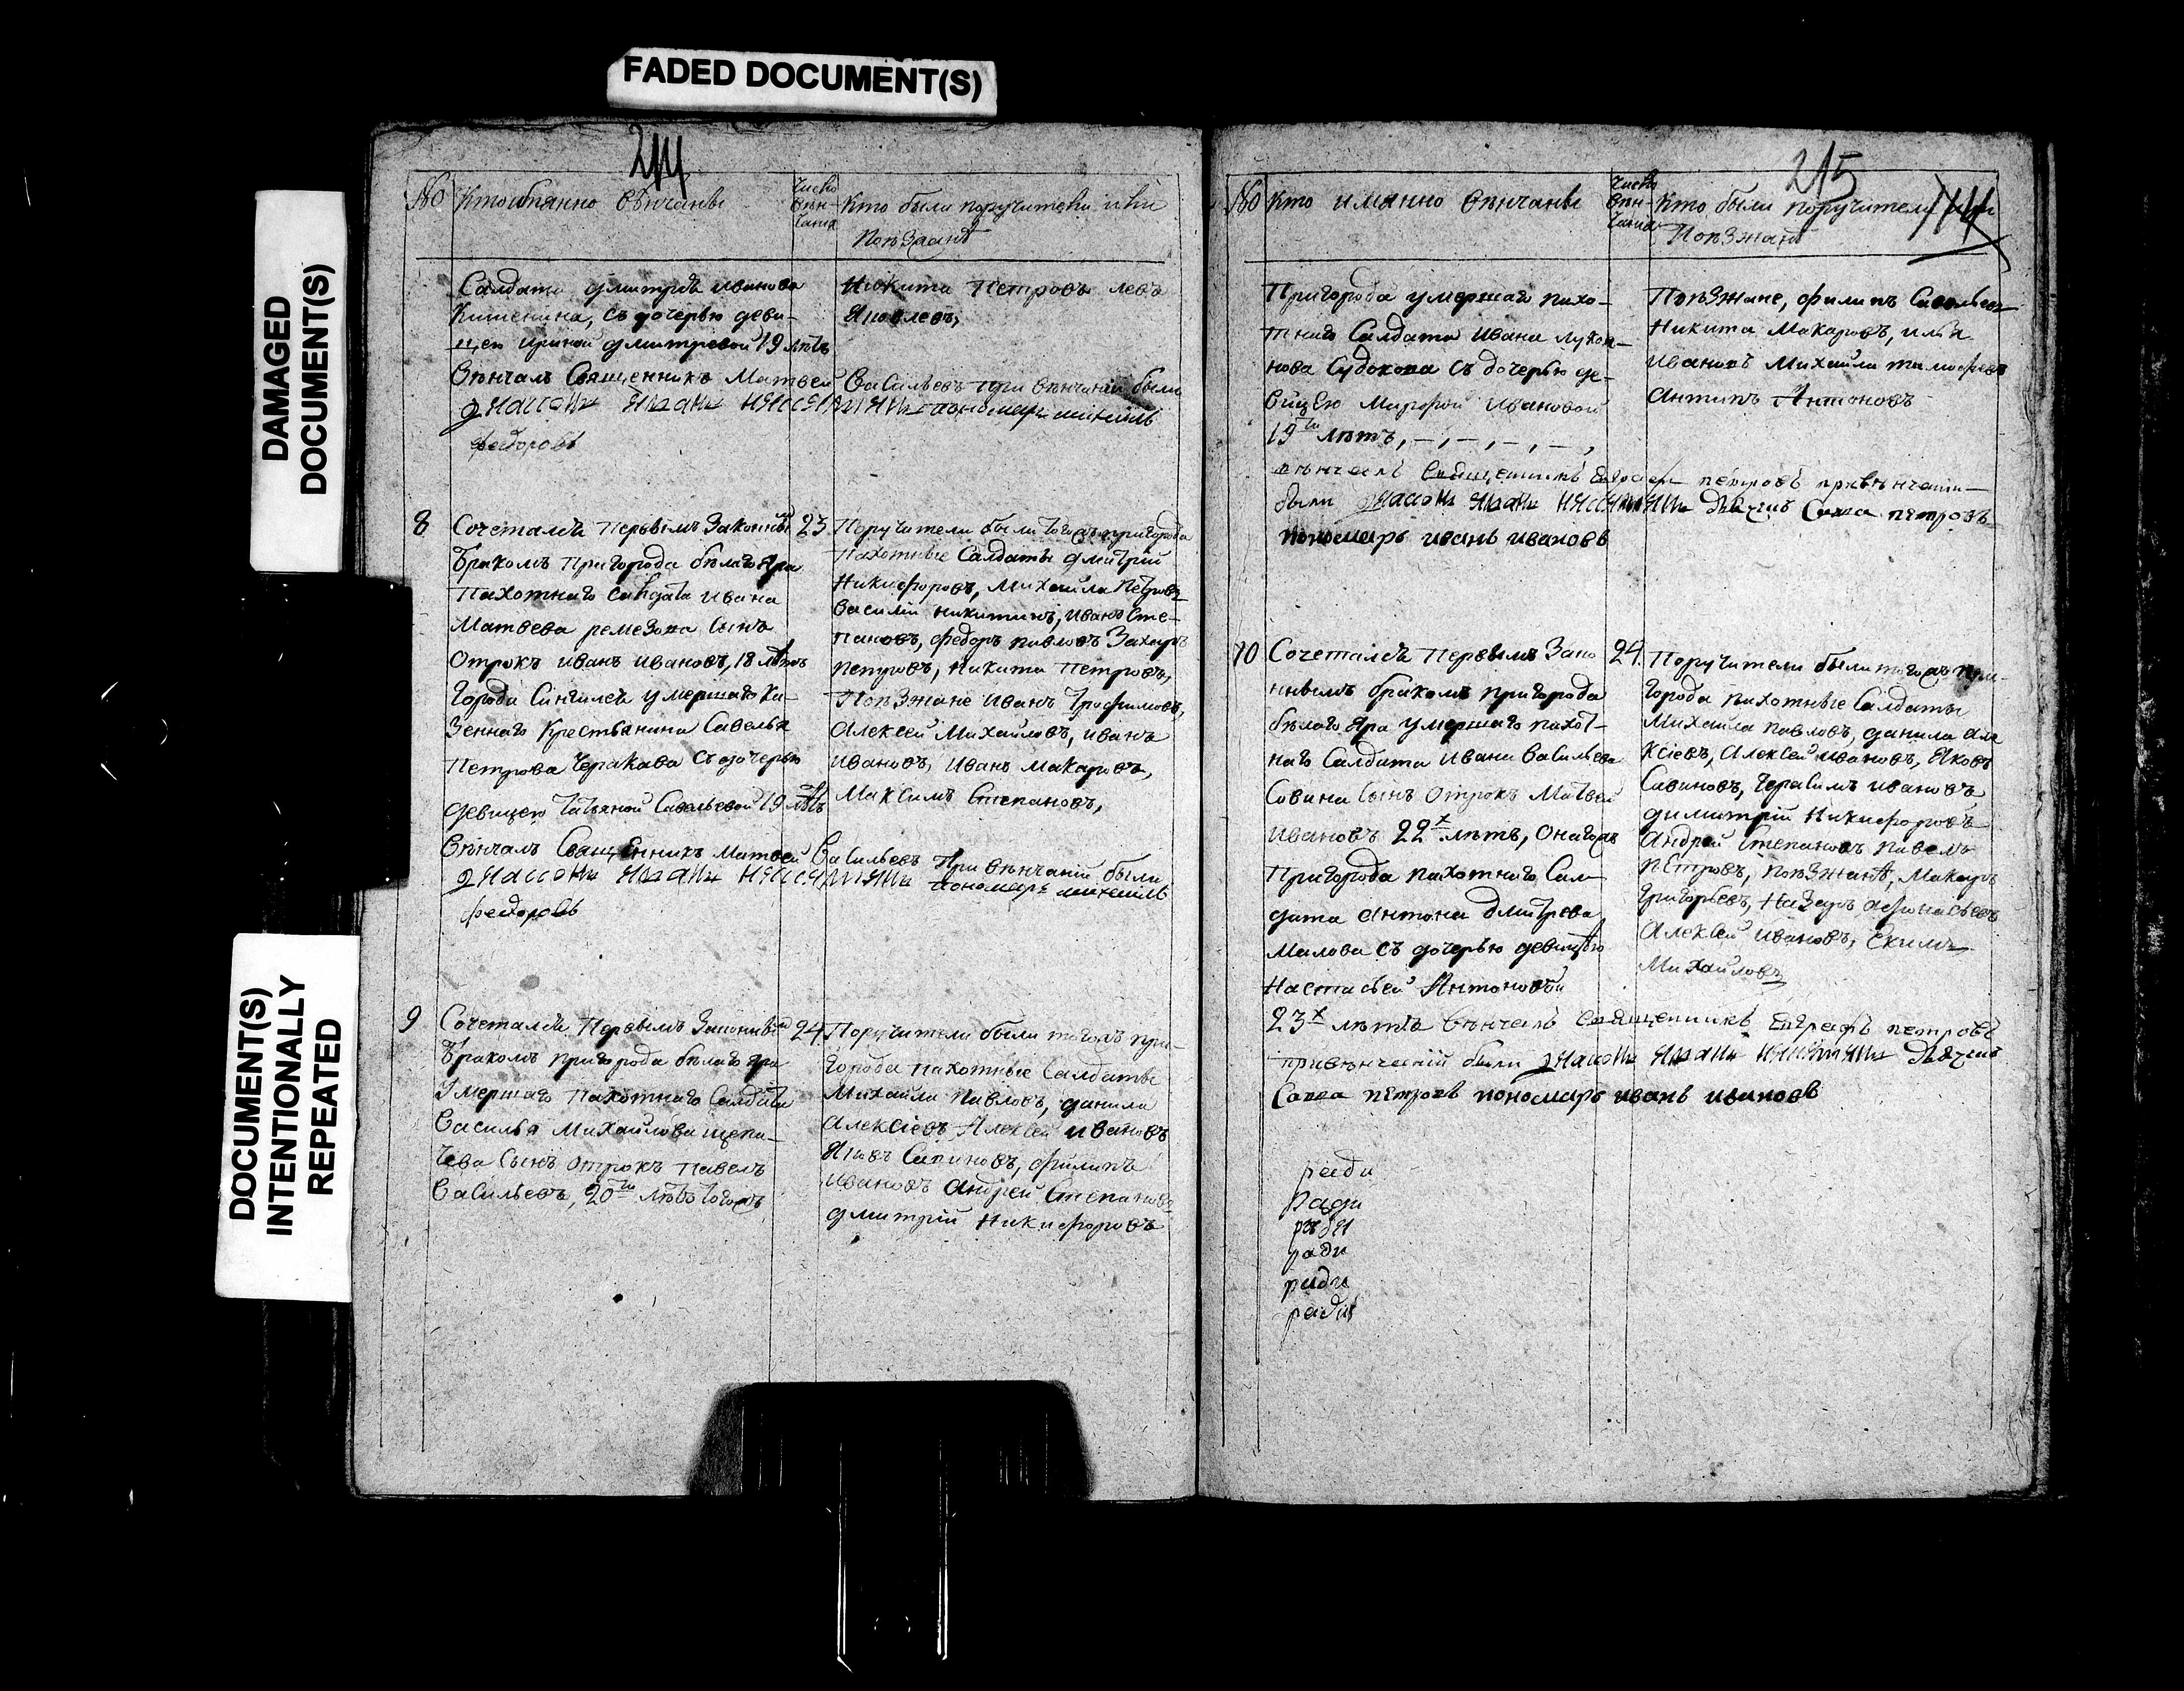 FADED DOCUMENT(S)
DAMAGED
DOCUMENT(S)
DOCUMENT(S)
INTENTIONALLY
REPEATED
214
№ Кто имянно венчаны
Число
вен-
чания
Кто были поручители и кто
Поезжанѣ
Салдата дмитрея иванова
Кишенина, съ дочерью деви-
цею ириной дмитревой 19 летъ
Венчалъ Священникъ Матвей Васильевъ при венчании были
пономарь михаилъ
федоровъ
Никита Петровъ левъ
Яковлевъ,
8
Сочетался первымъ законнымъ
бракомъ пригорода белаго Яра
пахотнаго салдата ивана
Матвева ремезова сынъ
Отрокъ иванъ ивановъ, 18 летъ
города Сингилея умершаго ка-
зеннаго крестьянина Савелья
Петрова Чер­акава съ дочерью
девицею Татьяной Савельевой 19 летъ
Венчалъ Священникъ Матвей Васильевъ При венчании были
пономарь михаилъ
федоровъ
23
Поручители были тогожъ пригорода
пахотные Салдаты дмитрий
Никифоровъ, Михайла Петровъ
Василий никитинъ, иванъ Сте-
пановъ, федоръ павловъ Захаръ
петровъ, Никита Петровъ,
Поезжане иванъ Трофимовъ,
Алексей Михайловъ, иванъ
ивановъ, иванъ макаровъ,
Максимъ Степановъ,
9
Сочетался Первымъ Законнымъ
бракомъ пригорода белаго яра
умершаго Пахотнаго Салдата
Василья Михайлова щепа-
чева сынъ отрокъ павелъ
Васильевъ, 20ти летъ тогожъ
24
Поручители были тогожъ при-
города пахотные Салдаты
Михайла Павловъ, данила
Алексіевъ, Алексей ивановъ
Яковъ Савиновъ, филипъ
ивановъ Андрей Степановъ
дмитрий Никифоровъ
215
№ Кто имянно венчаны
Число
вен-
чания
Кто были поручители
Поезжанѣ
Пригорода умершаго пахо-
тнаго Салдата ивана лукоя-
нова Судокова съ дочерью де-
вицею Марфой ивановой
19ти летъ, –, –, –, –,
венчалъ Священникъ Евграфъ петровъ привенчании
были дьячекъ Сава петровъ
пономарь иванъ ивановъ
Поезжане, филипъ Савельевъ
Никита Макаровъ, илья
ивановъ Михайла тимофеевъ
Антипъ Антоновъ
10
Сочетался Первымъ Зако
ннымъ бракомъ пригорода
белаго Яра умершаго пахот-
наго Салдата ивана васильева
Савина сынъ Отрокъ Матвей
ивановъ 22х летъ, Онагожъ
Пригорода пахотнаго Сал-
дата Антона дмитрева
Малова съ дочерью девицею
Настасьей Антоновой
23х летъ венчалъ Священникъ Евграфъ петровъ
привенчаній были дьячекъ
Савва петровъ пономарь иванъ ивановъ
24
Поручители были тогожъ при-
города пахотные Салдаты
Михайла павловъ, данила Але
ксіевъ, Алексей ивановъ, Яковъ
Савиновъ, герасимъ ивановъ
димитрий Никифоровъ
Андрей Степановъ павелъ
петровъ, поезжанѣ, Макаръ
григорьевъ, Назаръ афонасьевъ
Алексей ивановъ, Екимъ
Михайловъ
ради
ради
ради
ради
ради